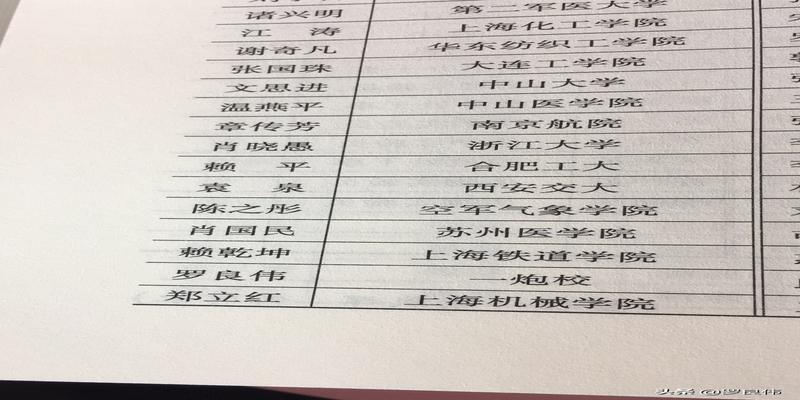 诸兴明 第二军医大学
江 涛 上海化工学院
谢奇凡 华东纺织工学院
张国珠 大连工学院
文思进 中山大学
温燕平 中山医学院
章传芳 南京航院
肖晓愚 浙江大学
赖 平 合肥工大
袁 泉 西安交大
陈之彤 空军气象学院
肖国民 苏州医学院
赖乾坤 上海铁道学院
罗良伟 一炮校
郑立红 上海机械学院
头条 @罗良伟